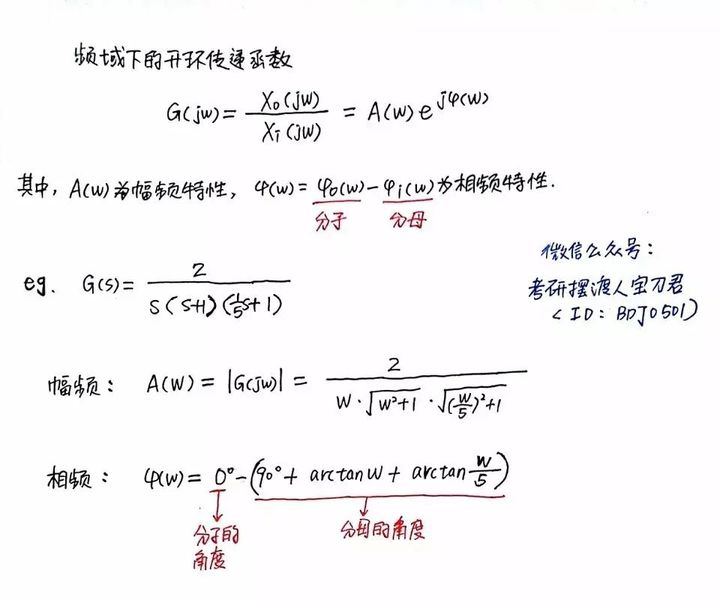 频域下的开环传递函数
G(jw) = X₀(jw) / Xᵢ(jw) = A(w) e^{jφ(w)}
其中, A(w)为幅频特性, φ(w) = φ₀(w) - φᵢ(w)为相频特性.
分子 分母
微信公众号:
考研摆渡人宝刀君
< ID: BDJ0501)
eg. G(s) = 2 / s(s+1)(⅕s+1)
幅频: A(W) = |G(jw)| = 2 / W·√(w²+1)·√((w/5)²+1)
相频: φ(w) = 0° - (90° + arctanw + arctan w/5)
分子的 分母的角度
角度